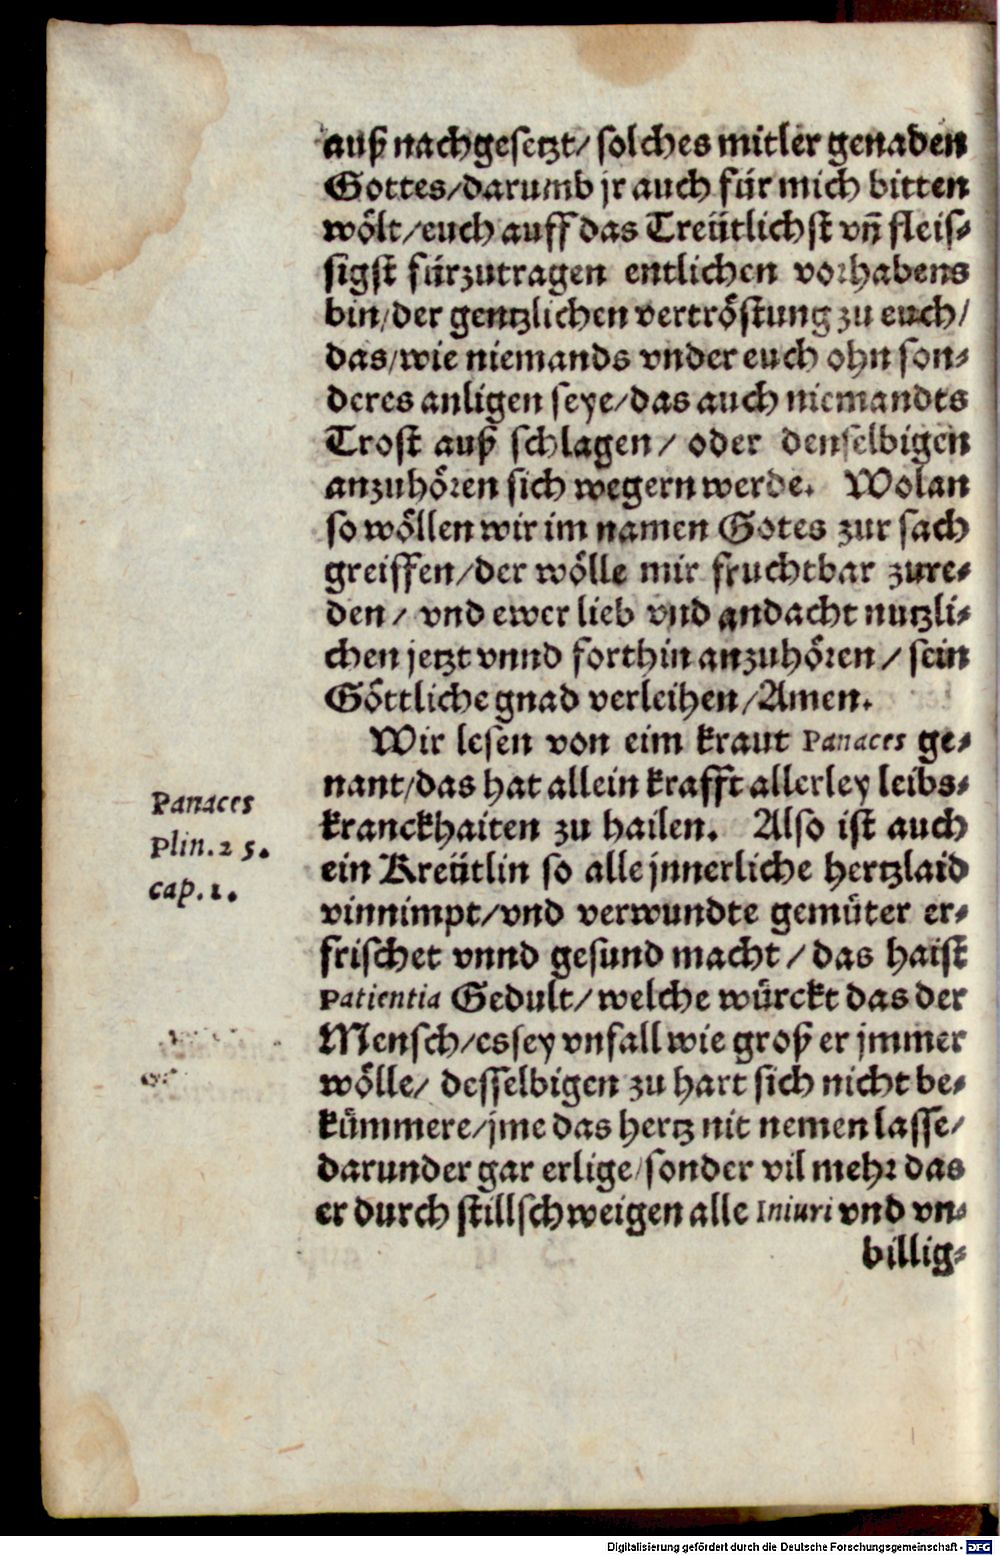 auß nachgesetzt/ solches mitler genaden
Gottes/darumb jr auch für mich bitten
wölt/euch auff das Treütlichst vñ fleis-
sigst fürzutragen entlichen vorhabens
bin/der gentzlichen vertröstung zu euch/
das/wie niemands vnder euch ohn son-
deres anligen seye/das auch niemandts
Trost auß schlagen/ oder denselbigen
anzuhören sich wegern werde. Wolan
so wöllen wir im namen Gotes zur sach
greiffen/der wölle mir fruchtbar zure-
den/ vnd ewer lieb vnd andacht nutzli-
chen jetzt vnnd forthin anzuhören/ sein
Göttliche gnad verleihen/Amen.
Wir lesen von eim kraut Panaces ge-
nant/das hat allein krafft allerley leibs-
kranckhaiten zu hailen. Also ist auch
ein Kreütlin so alle jnnerliche hertzlaid
vinnimpt/vnd verwundte gemüter er-
frischet vnnd gesund macht/das haist
Patientia Gedult/welche würckt das der
Mensch/es sey vnfall wie groß er jmmer
wölle/ desselbigen zu hart sich nicht be-
kümmere/jme das hertz nit nemen lasse/
darunder gar erlige/sonder vil mehr das
er durch stillschweigen alle Iniuri vnd vn-
billig-
Panaces
Plin.25.
cap.1.
Digitalisierung gefördert durch die Deutsche Forschungsgemeinschaft - DFG